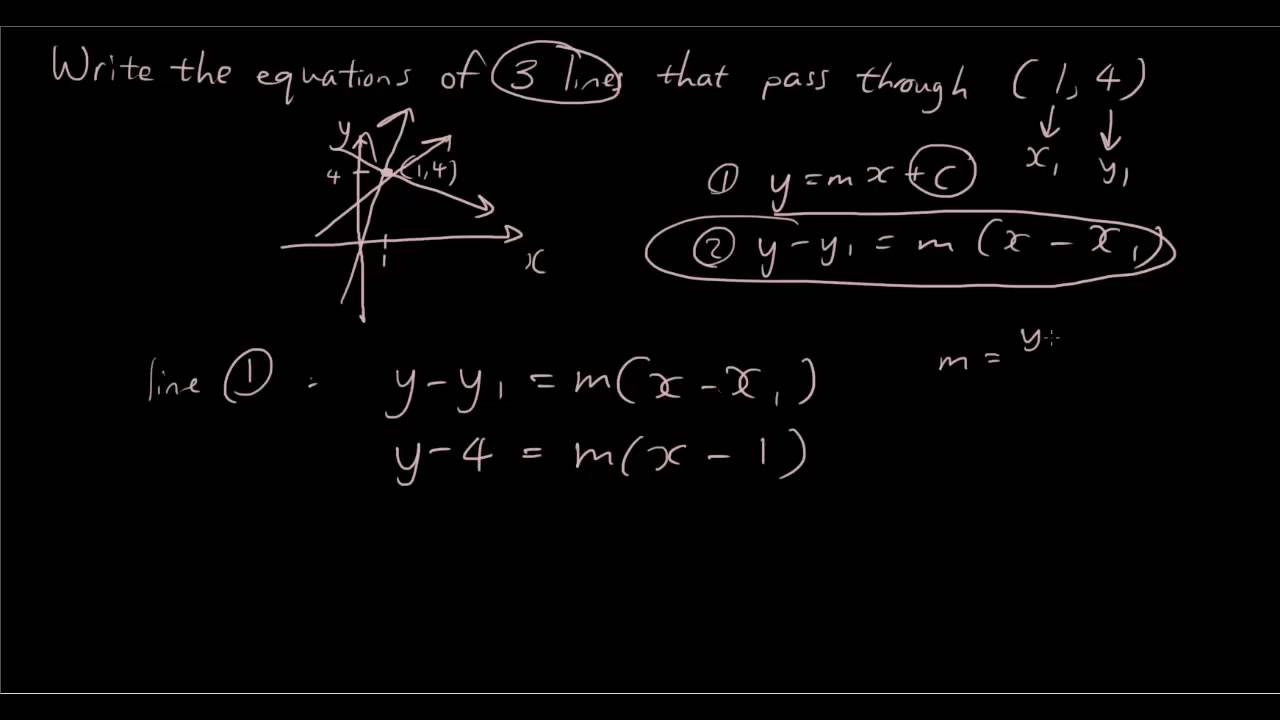 Write the equations of 3 lines that pass through (1, 4)
y
4
(1,4)
1
x
x₁
y₁
① y = mx + c
② y - y₁ = m(x - x₁)
line ① : y - y₁ = m(x - x₁)
y - 4 = m(x - 1)
m = y-